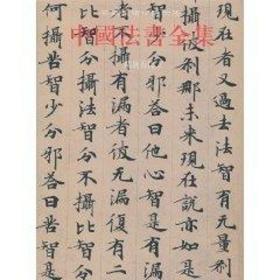 中國法書全集
現在者又過去法智有无量刹
攝彼刹那未来現在説亦如是
智少分邪荅曰他心智是有漏
者不攝有漏者彼无漏復有二
比智分攝法智分不攝比智分
何攝苦智少分邪荅曰苦智是